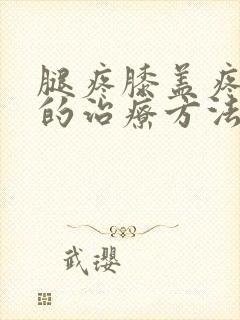 腿疼膝盖疼
的治疗方法
武璎